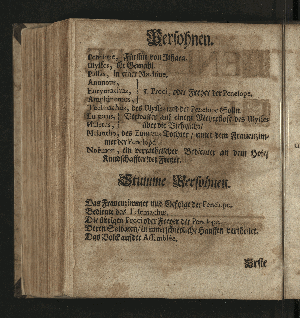 Persohnen.
Penelope, Fürstin von Ithaca.
Ulysses, ihr Gemahl.
Pallas, in einer Machine.
Antinous,
Eurymachus, Proci, oder Freyer der Penelope.
Amphinomus,
Telemachus, des Ulysses und der Penelope Sohn.
Eumæus, auf einem Meyerhofe des Ulysses
über die Viehzucht.
Melantho, des Tochter, unter dem Frauenzim-
mer der Penelope.
ein verrätherischer Bedienter an dem Hofe,
Kundschaffter der Freyer.
Stumme Persohnen.
Das Frauenzimmer und Gefolge der Penelope.
Bediente des Telemachus.
Die übrigen Proci oder Freyer der Penelope.
Deren Soldaten, in unterschiedliche Hauffen vertheilet.
Das Volck auf der Assemblée.
Erste